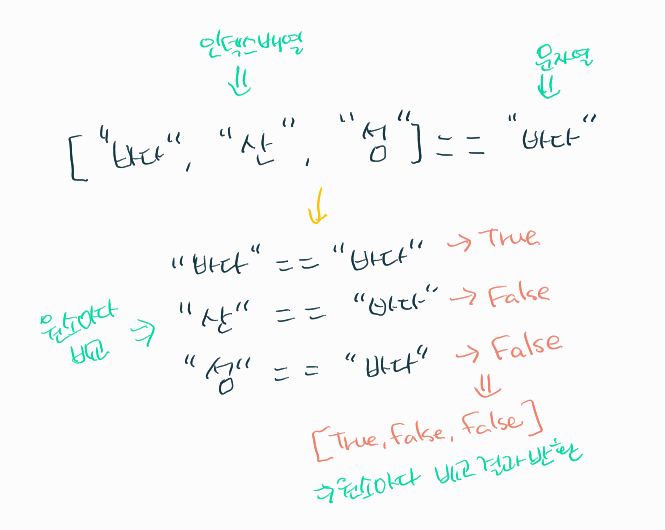 인덱스배열
문자열
["바다", "산", "섬"] == "바다"
"바다" == "바다" → True
"산" == "바다" → False
원소마다
비교 ⇒
"섬" == "바다" → False
[True, False, False]
⇒ 원소마다 비교 결과 반환